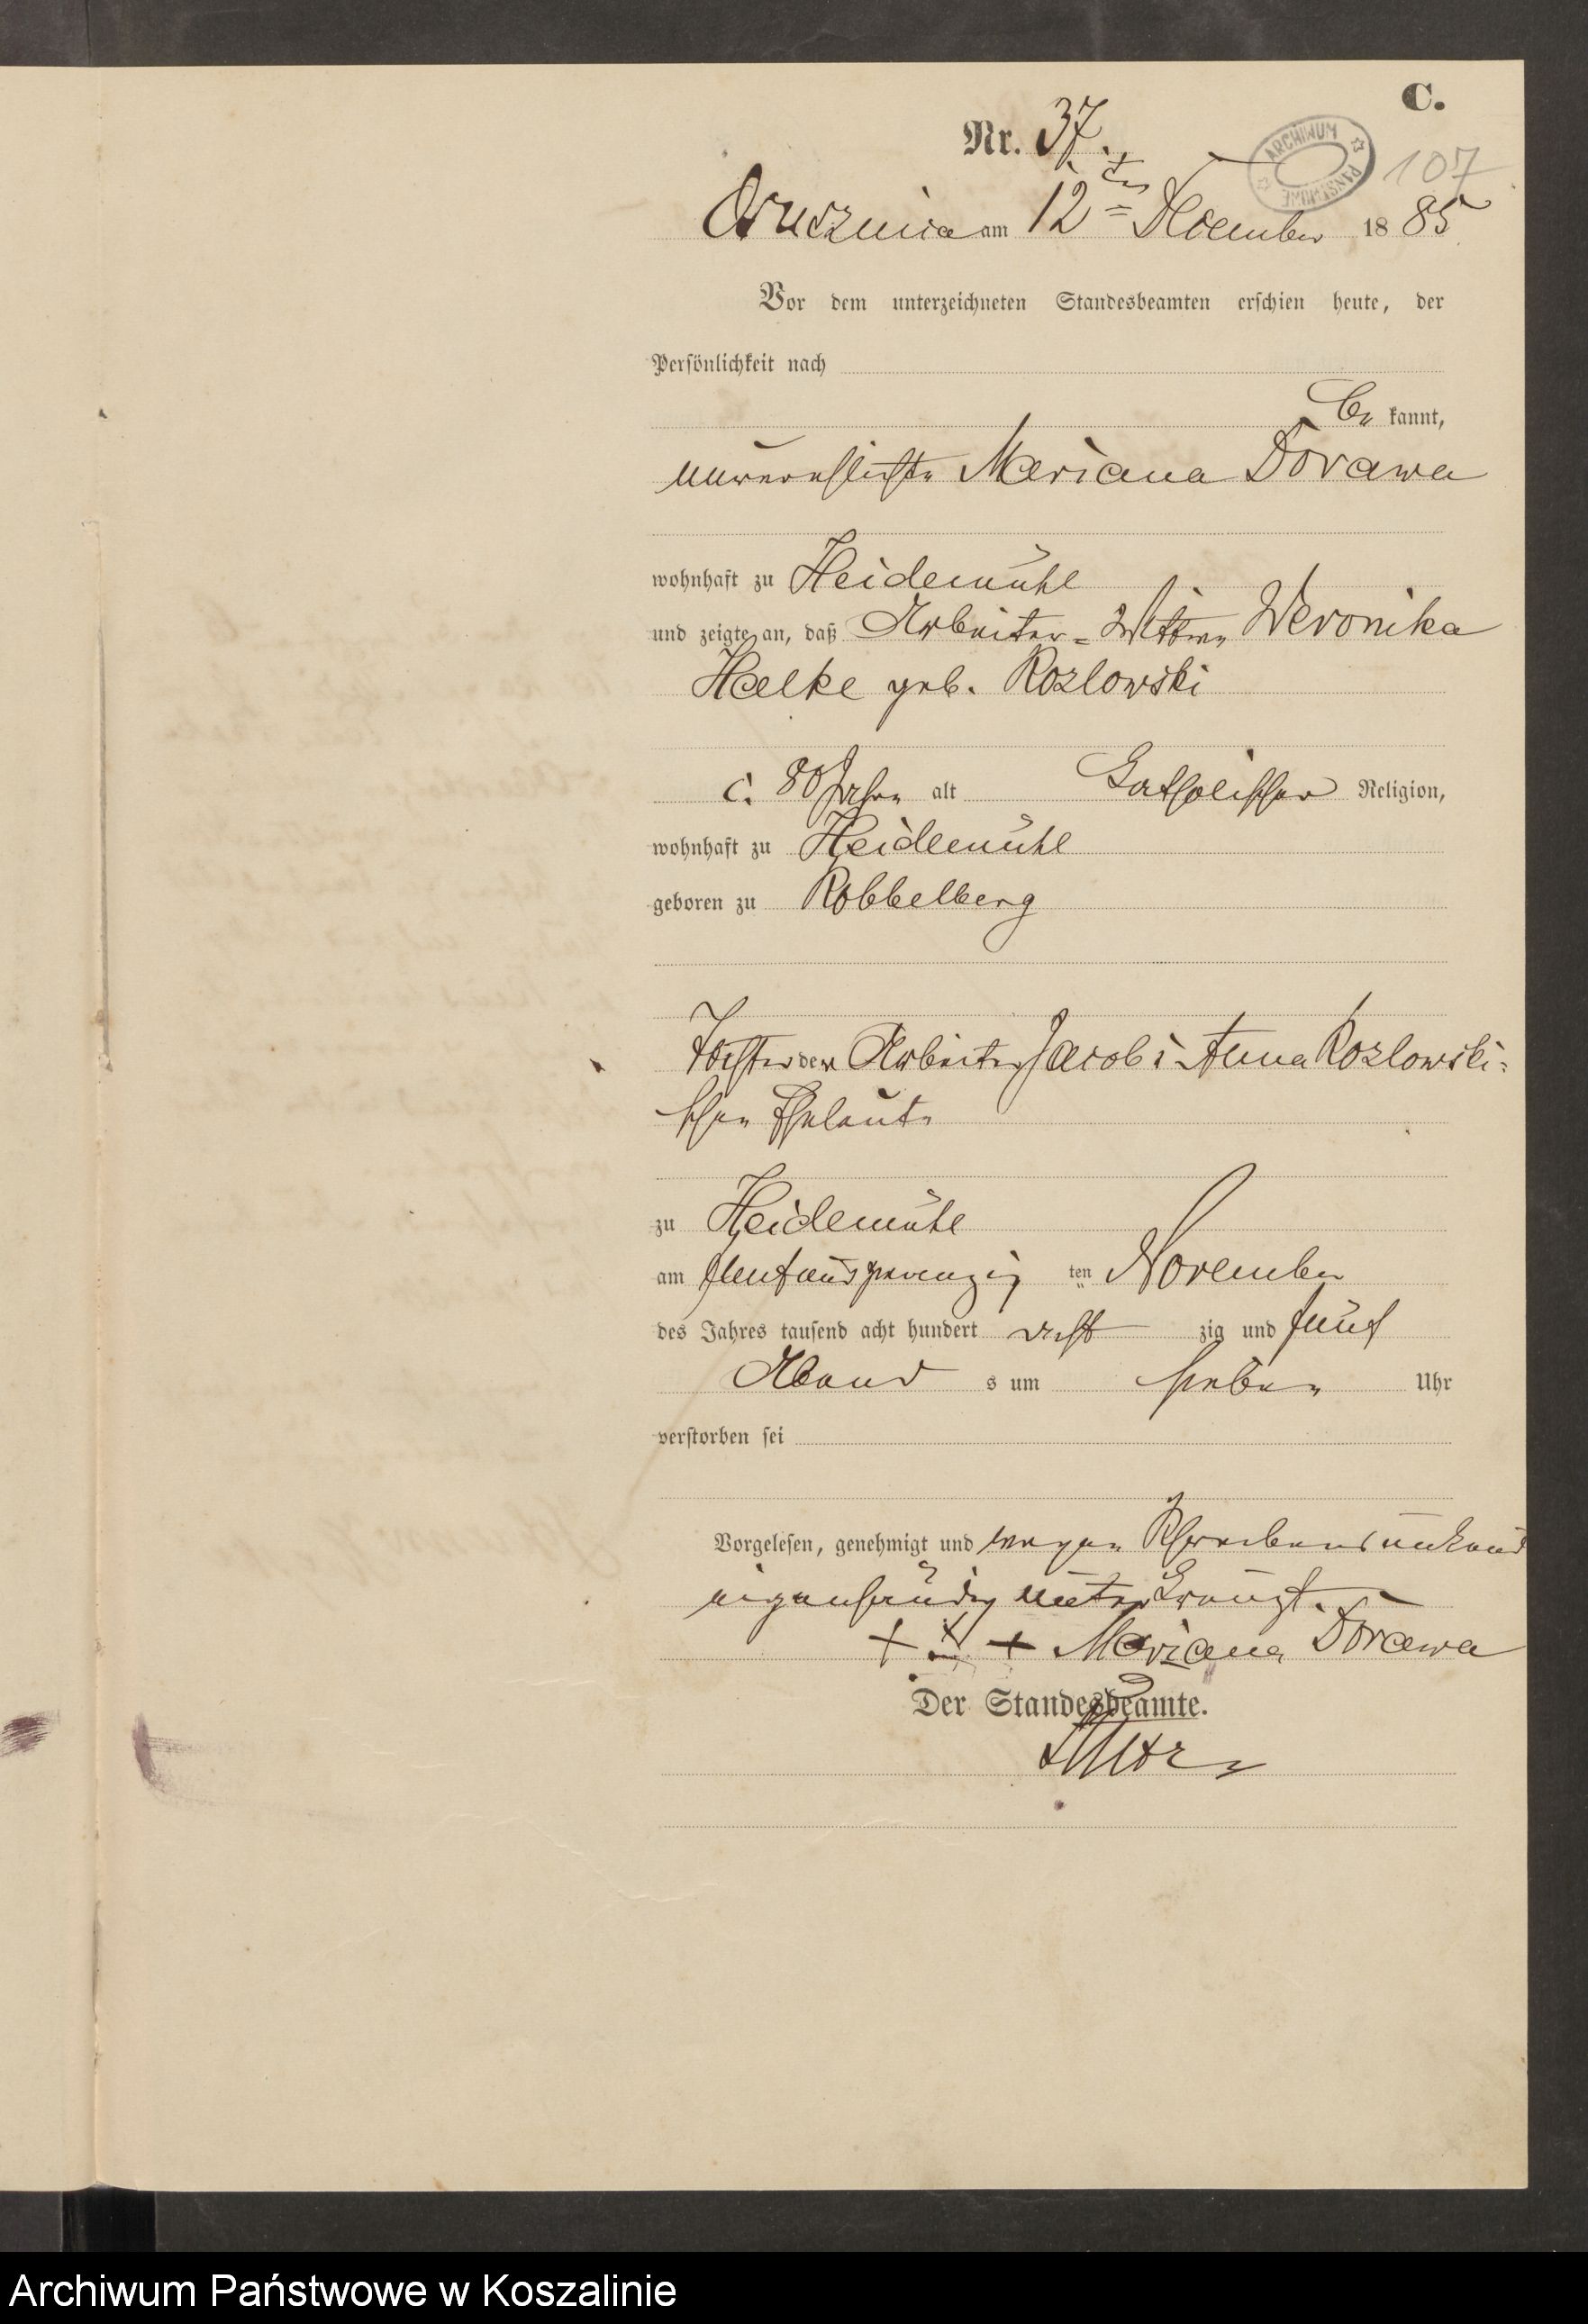 C.
Nr. 37.
ARCHIWUM PAŃSTWOWE
107
Ossusznica am 12ten Dezember 1885
Vor dem unterzeichneten Standesbeamten erschien heute, der
Persönlichkeit nach
be kannt,
unverehlichte Mariana Dorawa
wohnhaft zu Heidemühl
und zeigte an, daß Arbeiter-Wittwe Weronika
Halke geb. Kozlowski
c. 80 Jahre alt katholischer Religion,
wohnhaft zu Heidemühl
geboren zu Robbelberg
Tochter der Arbeiter Jacob i Anna Kozlowski-
schen Eheleute
zu Heidemühl
am fünfundzwanzig ten November
des Jahres tausend acht hundert acht zig und fünf
Abend s um sieben Uhr
verstorben sei
Vorgelesen, genehmigt und wegen Schreibensunkund
eigenhändig unterkreuzt.
+ + + Mariana Dorawa
Der Standesbeamte.
Archiwum Państwowe w Koszalinie